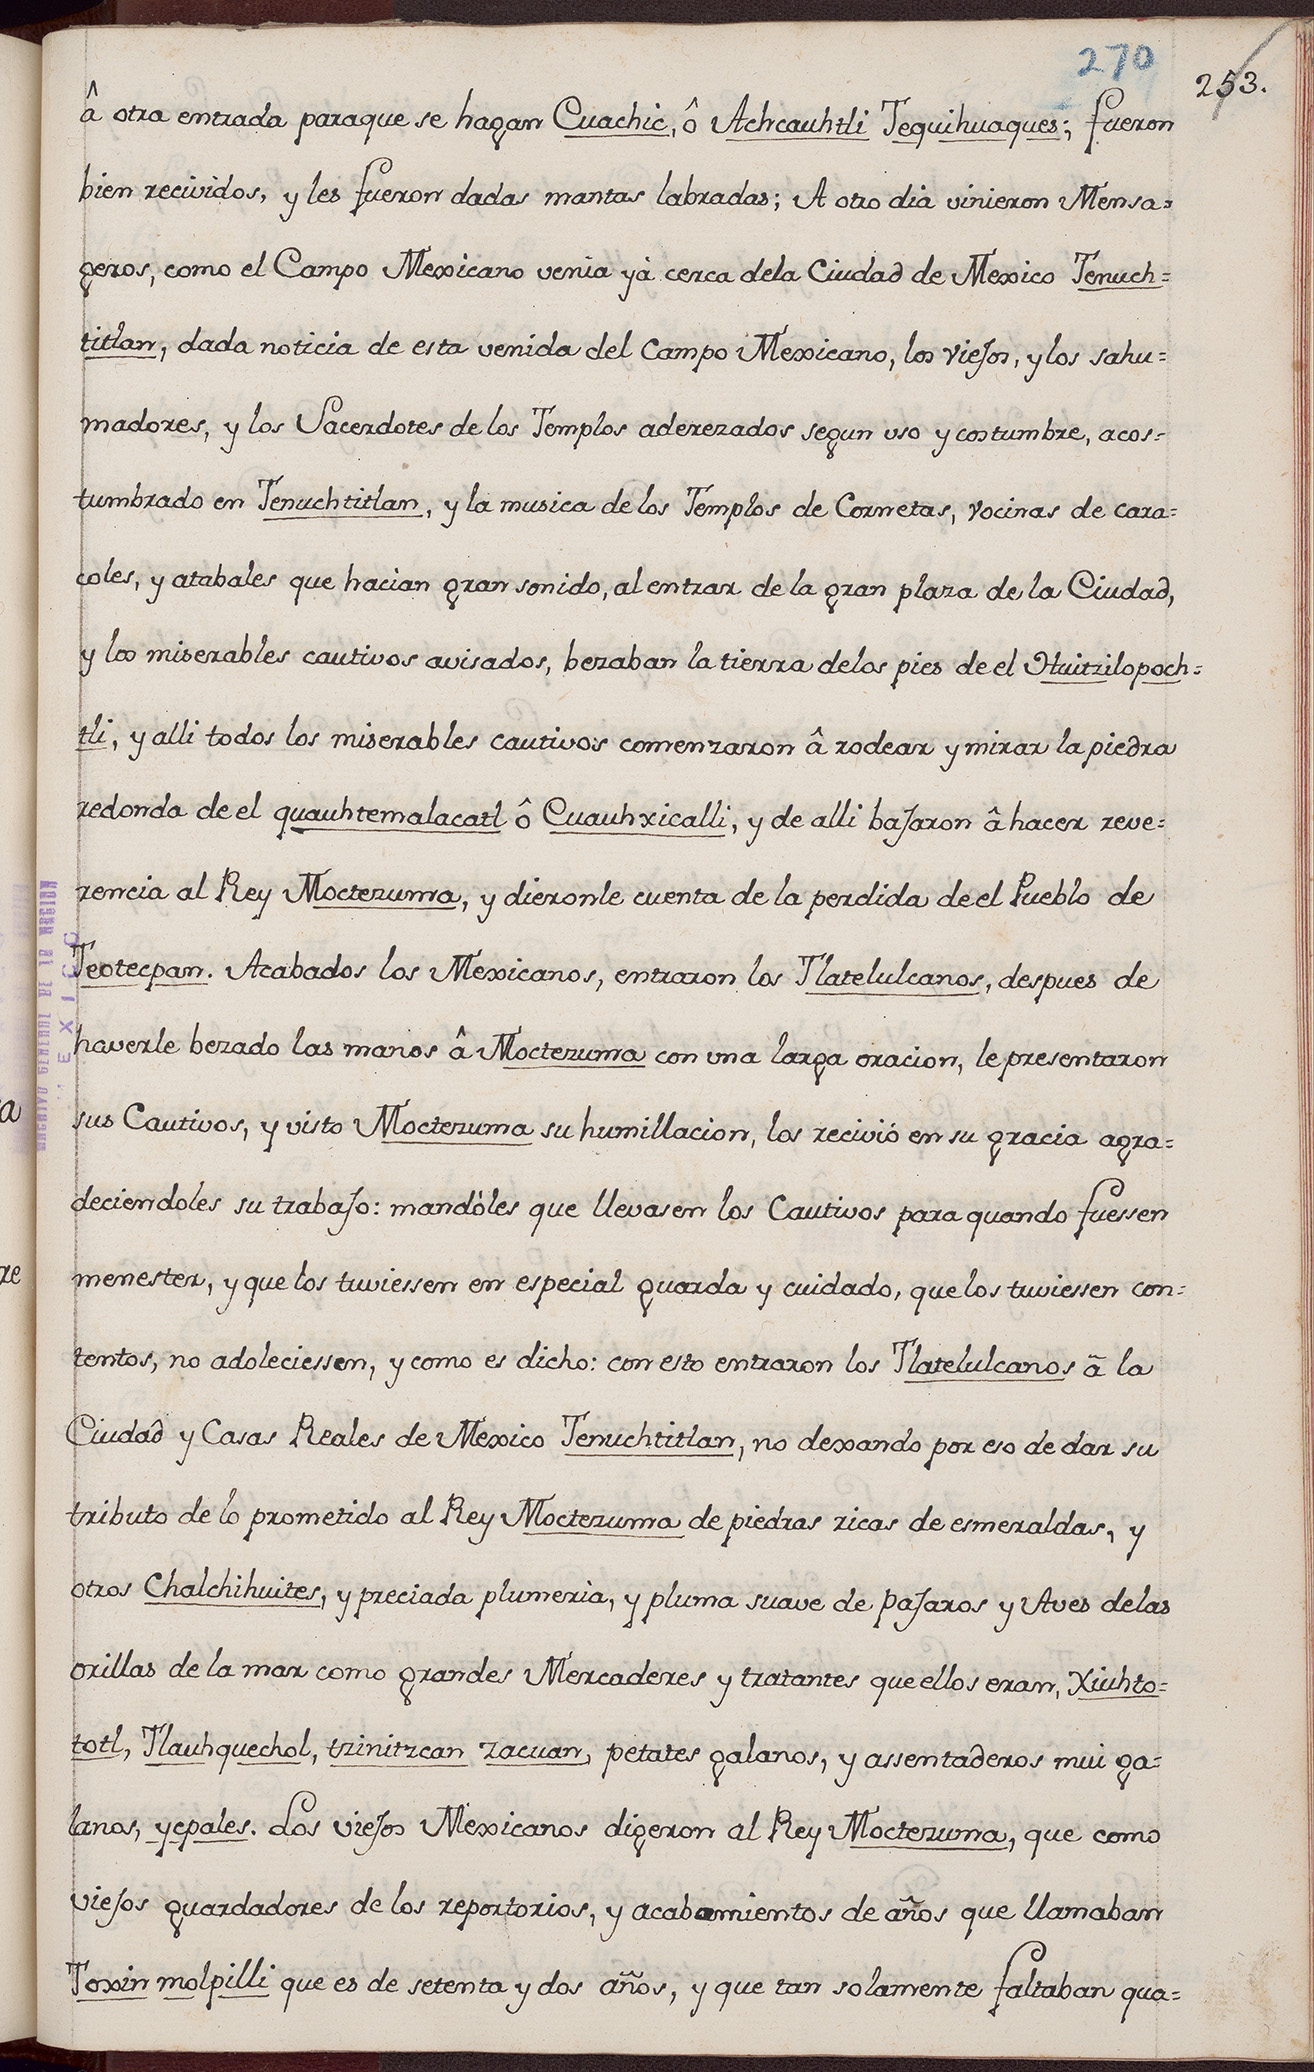 270
253.
â otra entrada paraque se hagan Cuachic, ô Achcauhtli Tequihuaques; fueron
bien recividos, y les fueron dadas mantas labradas; A otro dia vinieron Mensa=
geros, como el Campo Mexicano venia yà cerca dela Ciudad de Mexico Tenuch=
titlan, dada noticia de esta venida del Campo Mexicano, los viejos, y los sahu=
madores, y los Sacerdotes de los Templos aderezados segun uso y costumbre, acos=
tumbrado en Tenuchtitlan, y la musica de los Templos de Cornetas, vocinas de cara=
coles, y atabales que hacian gran sonido, al entrar de la gran plaza de la Ciudad,
y los miserables cautivos avisados, bezaban la tierra delos pies de el Huitzilopoch=
tli, y alli todos los miserables cautivos comenzaron â rodear y mirar la piedra
redonda de el quauhtemalacatl ô Cuauhxicalli, y de alli bajaron â hacer reve=
rencia al Rey Moctezuma, y dieronle cuenta de la perdida de el Pueblo de
Teotecpan. Acabados los Mexicanos, entraron los Tlatelulcanos, despues de
haverle bezado las manos â Moctezuma con una larga oracion, le presentaron
sus Cautivos, y visto Moctezuma su humillacion, los recivió en su gracia agra=
deciendoles su trabajo: mandòles que llevasen los Cautivos para quando fuessen
menester, y que los tuviessen en especial guarda y cuidado, que los tuviessen con=
tentos, no adoleciessen, y como es dicho: con esto entraron los Tlatelulcanos ã la
Ciudad y Casas Reales de Mexico Tenuchtitlan, no dexando por eso de dar su
tributo de lo prometido al Rey Moctezuma de piedras ricas de esmeraldas, y
otros Chalchihuites, y preciada plumerìa, y pluma suave de pajaros y Aves delas
orillas de la mar como grandes Mercaderes y tratantes que ellos eran, Xiuhto=
totl, Tlauhquechol, tzinitzcan zacuan, petates galanos, y assentaderos mui ga=
lanos, yepales. Los viejos Mexicanos digeron al Rey Moctezuma, que como
viejos guardadores de los reportorios, y acabamientos de años que llamaban
Toxin molpilli que es de setenta y dos años, y que tan solamente faltaban qua=
ARCHIVO GENERAL DE LA NACION
MEXICO
a
re